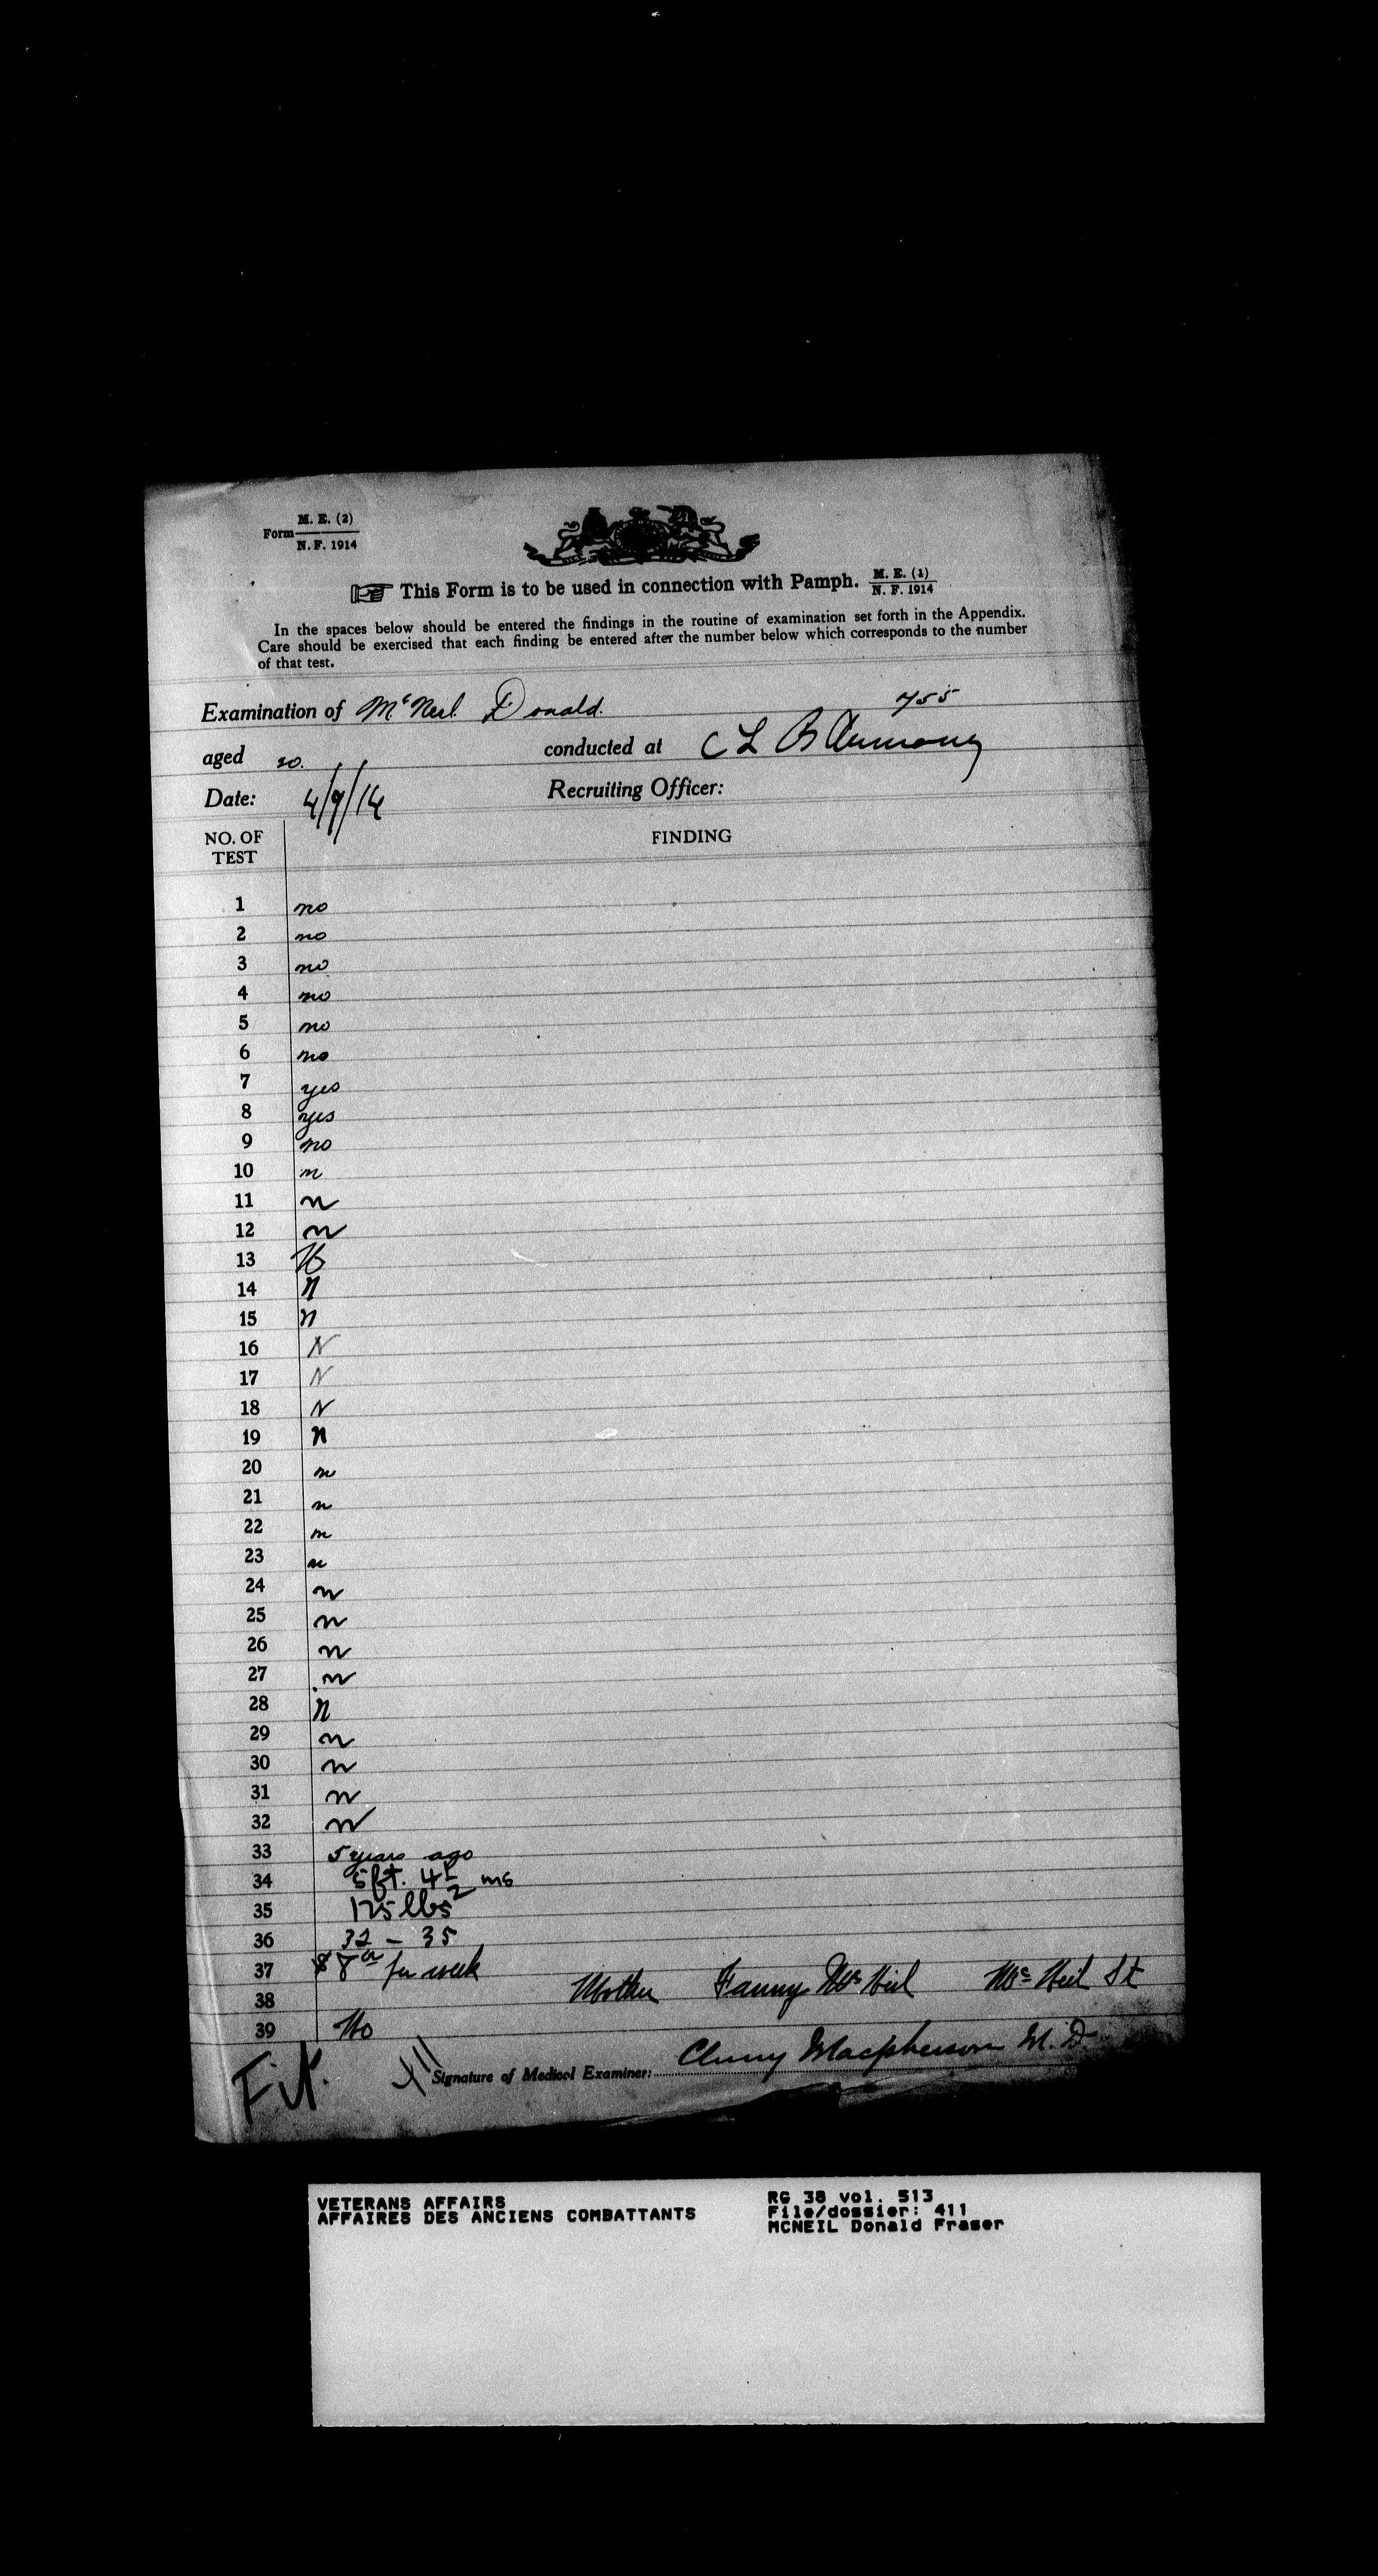 Form M. E. (2)
N. F. 1914
This Form is to be used in connection with Pamph. M. E. (1)
N. F. 1914
In the spaces below should be entered the findings in the routine of examination set forth in the Appendix.
Care should be exercised that each finding be entered after the number below which corresponds to the number
of that test.
755
Examination of McNeil Donald.
aged 20. conducted at C L B Armoury
Date: 4/9/14 Recruiting Officer:
NO. OF TEST FINDING
1 no
2 no
3 no
4 no
5 no
6 no
7 yes
8 yes
9 no
10 n
11 n
12 n
13
14 n
15 n
16 N
17 N
18 N
19 n
20 n
21 n
22 n
23 n
24 n
25 n
26 n
27 n
28 n
29 n
30 n
31 n
32 n
33 5 years ago
34 5 ft. 4½ ins
35 125 lbs
36 32 - 35
37 $8 00 per week
38 Mother Fanny McNeil McNeil St
39 No
Fit.
Signature of Medical Examiner: Cluny Macpherson M.D.
VETERANS AFFAIRS
AFFAIRES DES ANCIENS COMBATTANTS
RG 38 vol. 513
File/dossier: 411
MCNEIL Donald Fraser